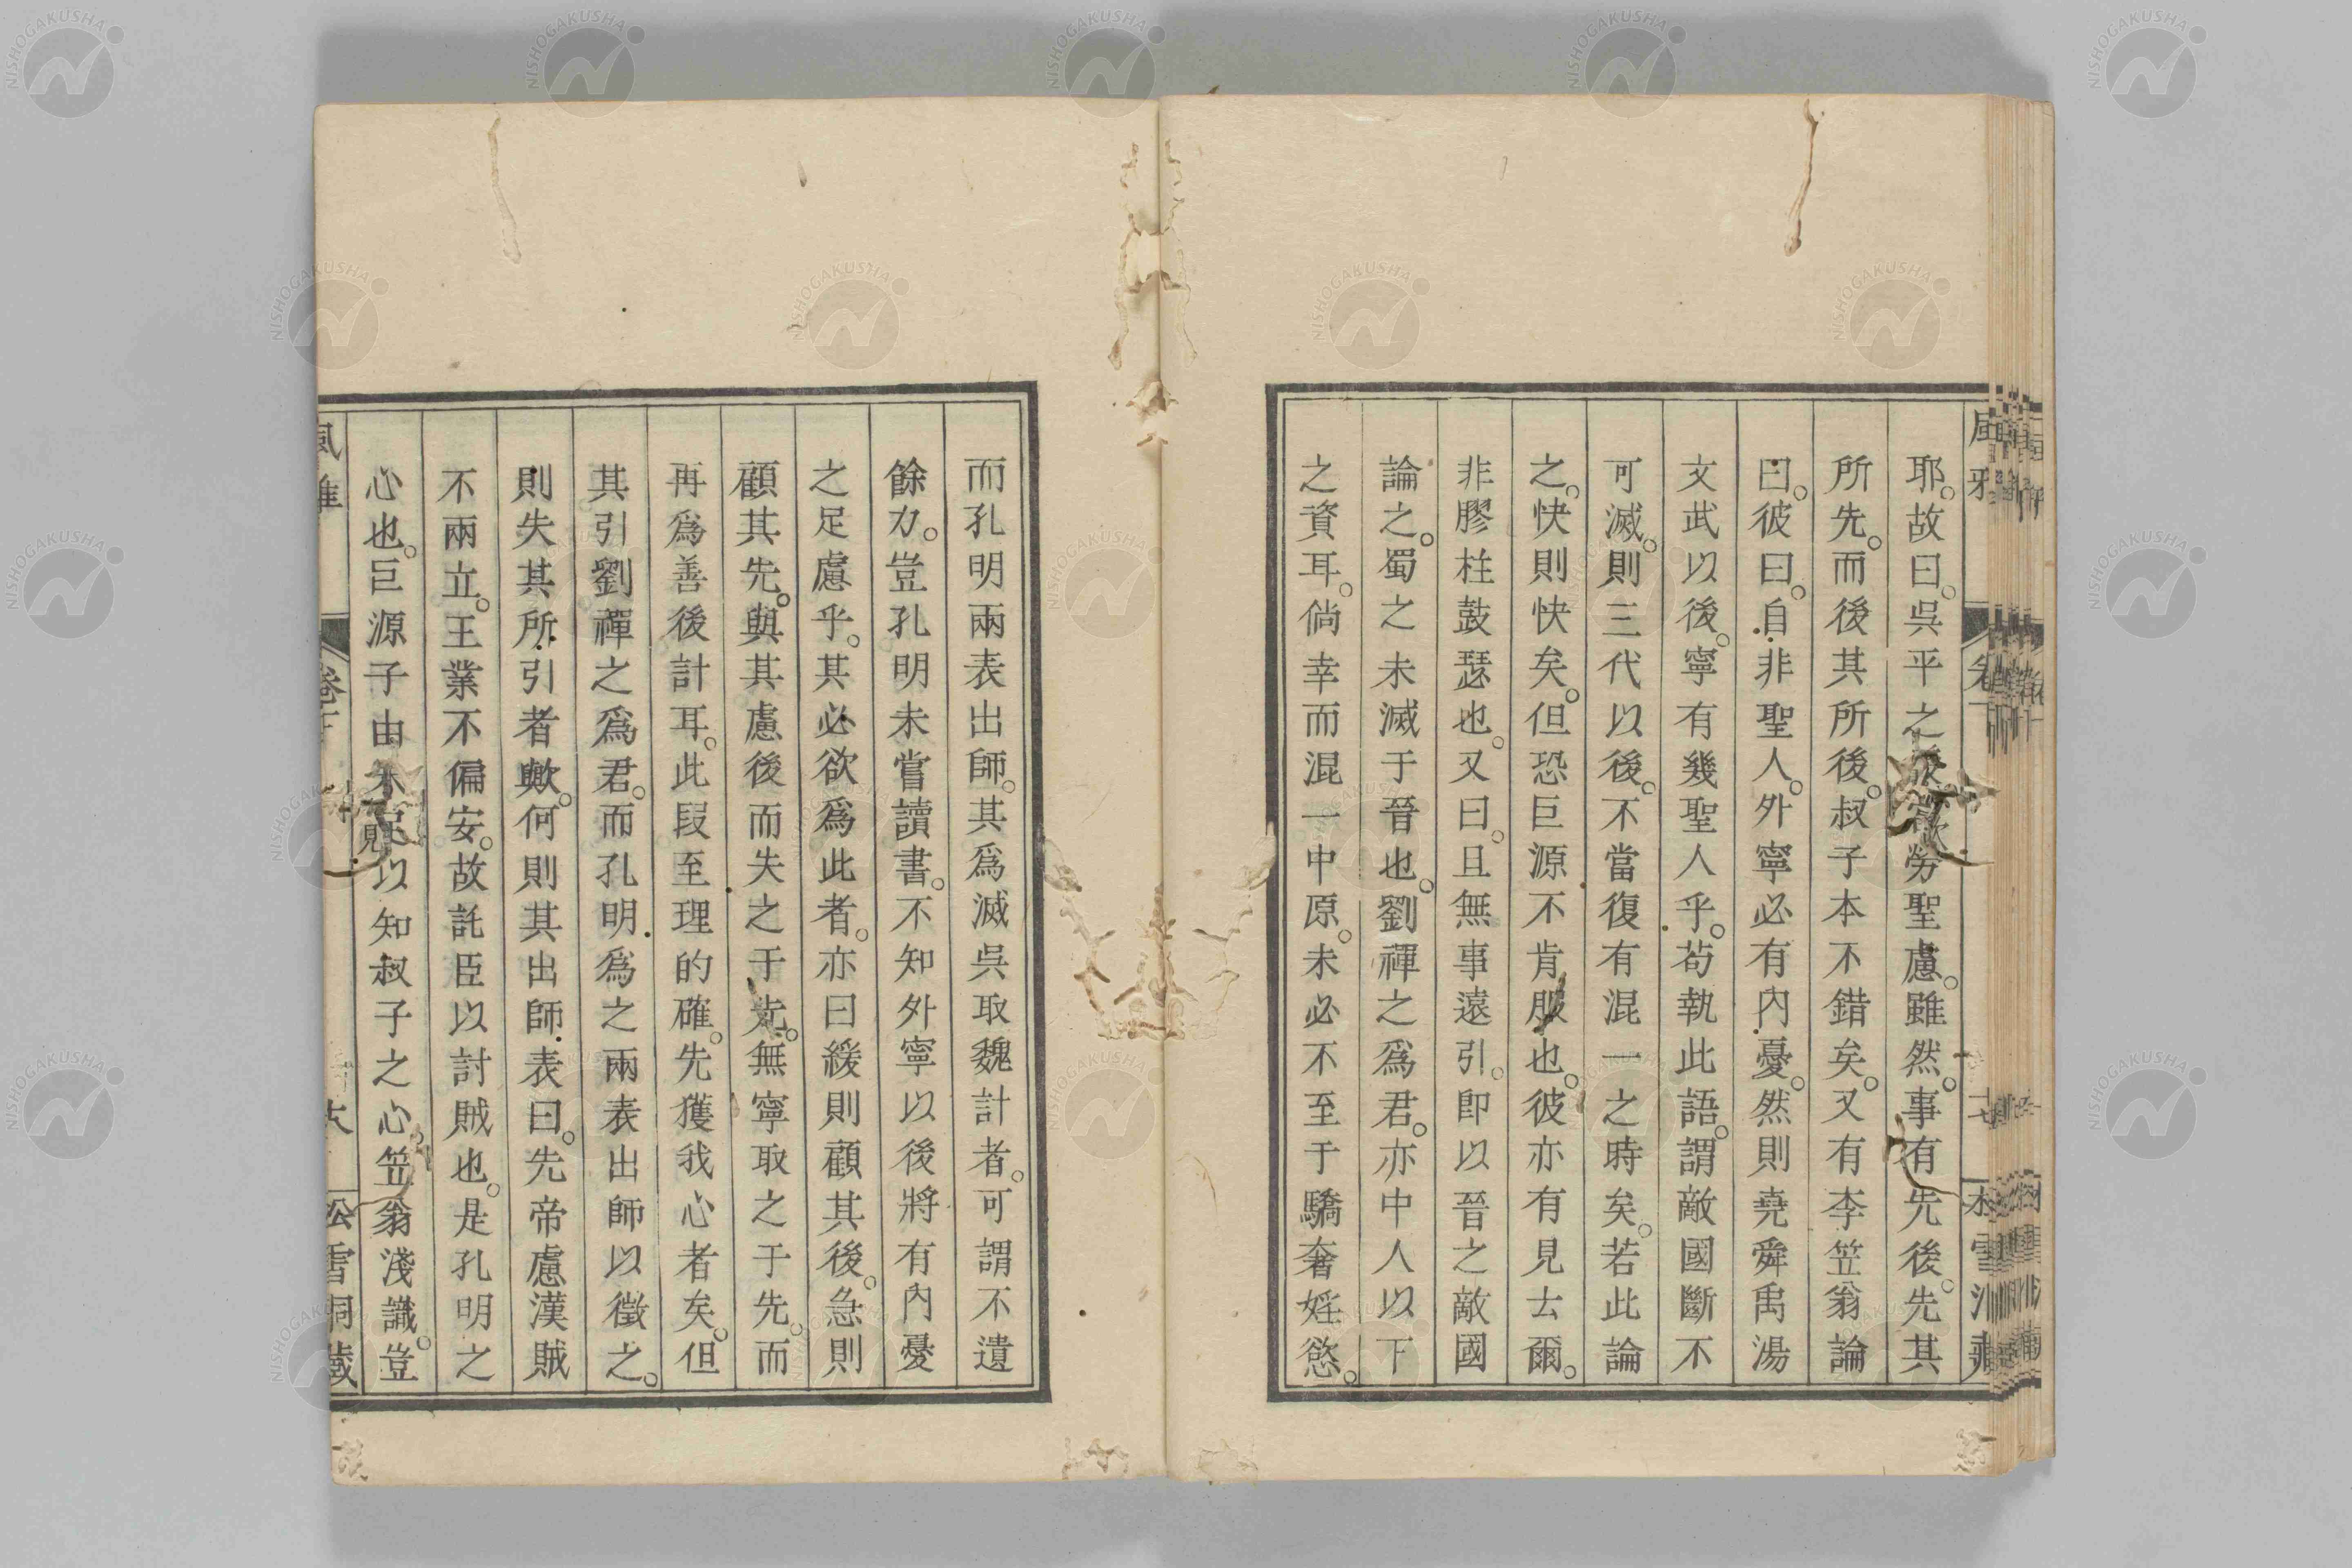 耶。故曰。吳平之後。勞聖慮。雖然。事有先後。先其
所先。而後其所後。叔子本不錯矣。又有李笠翁論
曰。彼曰。自非聖人。外寧必有內憂。然則堯舜禹湯
文武以後。寧有幾聖人乎。苟執此語。謂敵國斷不
可滅。則三代以後。不當復有混一之時矣。若此論
之。快則快矣。但恐巨源不肯服也。彼亦有見去爾。
非膠柱鼓瑟也。又曰。且無事遠引。即以晉之敵國
論之。蜀之未滅于晉也。劉禪之爲君。亦中人以下
之資耳。倘幸而混一中原。未必不至于驕奢婬慾。
而孔明兩表出師。其爲滅吳取魏計者。可謂不遺
餘力。豈孔明未嘗讀書。不知外寧以後將有內憂
之足慮乎。其必欲爲此者。亦曰緩則顧其後。急則
顧其先。與其慮後而失之于先。無寧取之于先。而
再爲善後計耳。此段至理的確。先獲我心者矣。但
其引劉禪之爲君。而孔明爲之兩表出師以徵之。
則失其所引者歟。何則其出師表曰。先帝慮漢賊
不兩立。王業不偏安。故託臣以討賊也。是孔明之
心也。巨源子由未足以知叔子之心。笠翁淺識。豈
風雅
卷
六
松雪洞藏
NISHOGAKUSHA